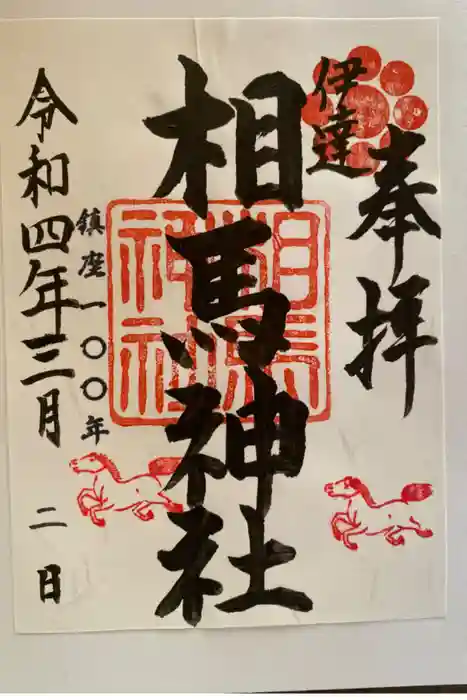 奉拝
伊達
相馬神社
相馬
神社
鎮座一〇〇年
令和四年三月二日